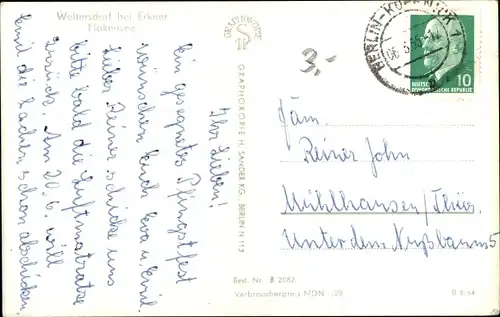 Woltersdorf bei Erkner
Flakensee
Ihr Lieben!
Ein gesegnetes Pfingstfest
wünschen Euch Eva u. Emil
Lieber Reiner schicke uns
bitte bald die Luftmatratze
zurück. Am 20.6. will
Emil die Sachen schon abschicken.
GRAPHOKOPIE
GRAPHOKOPIE H. SANDER KG. BERLIN N 113
3,-
BERLIN-KÖPENICK 1
DEUTSCHE
DEMOKRATISCHE REPUBLIK
10
Fam.
Reiner John
Mühlhausen/Thür.
Unter dem Nußbaum 5
Best. Nr. B 2082
Verbraucherpreis MDN -,20